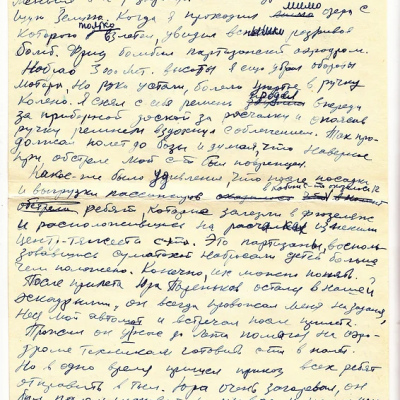 Когда я проходил мимо озера с
которого только взлетел, увидил вспышки разрывов
бомб. Фриц бомбил партизанский аэродром.
Набрав 3000 мт. высоты я ещё убрал обороты
мотора. Но руки устали, болело в ручку
Колено. Я снял с себя ремень впереди
за приборной доской за расчалки и оттянув
ручку ремнем вздохнул с облегчением. Так про-
должал полет до базы и думая, что наверное
при обстреле мой с-т был поврежден.
Какое-же было удивление, что после посадки
и выгрузки пассажиров
ребят, которые залезли в фюзеляж
и расположившись на изменили
центр тяжести с-та. Это партизаны, восполь-
зовавшись суматохой насовали детей больше
чем положено. Конечно, их можно понять.
После прилета Юра остался в нашей
эскадрилии, он всегда провожал меня на задание,
нёс мой автомат и встречал после прилета.
Прожил он у нас до лета помогал на аэро-
дроме техникам готовить с-ты в полет.
Но в одно время пришел приказ всех ребят
отправить в тыл. Юра очень загоревал, он